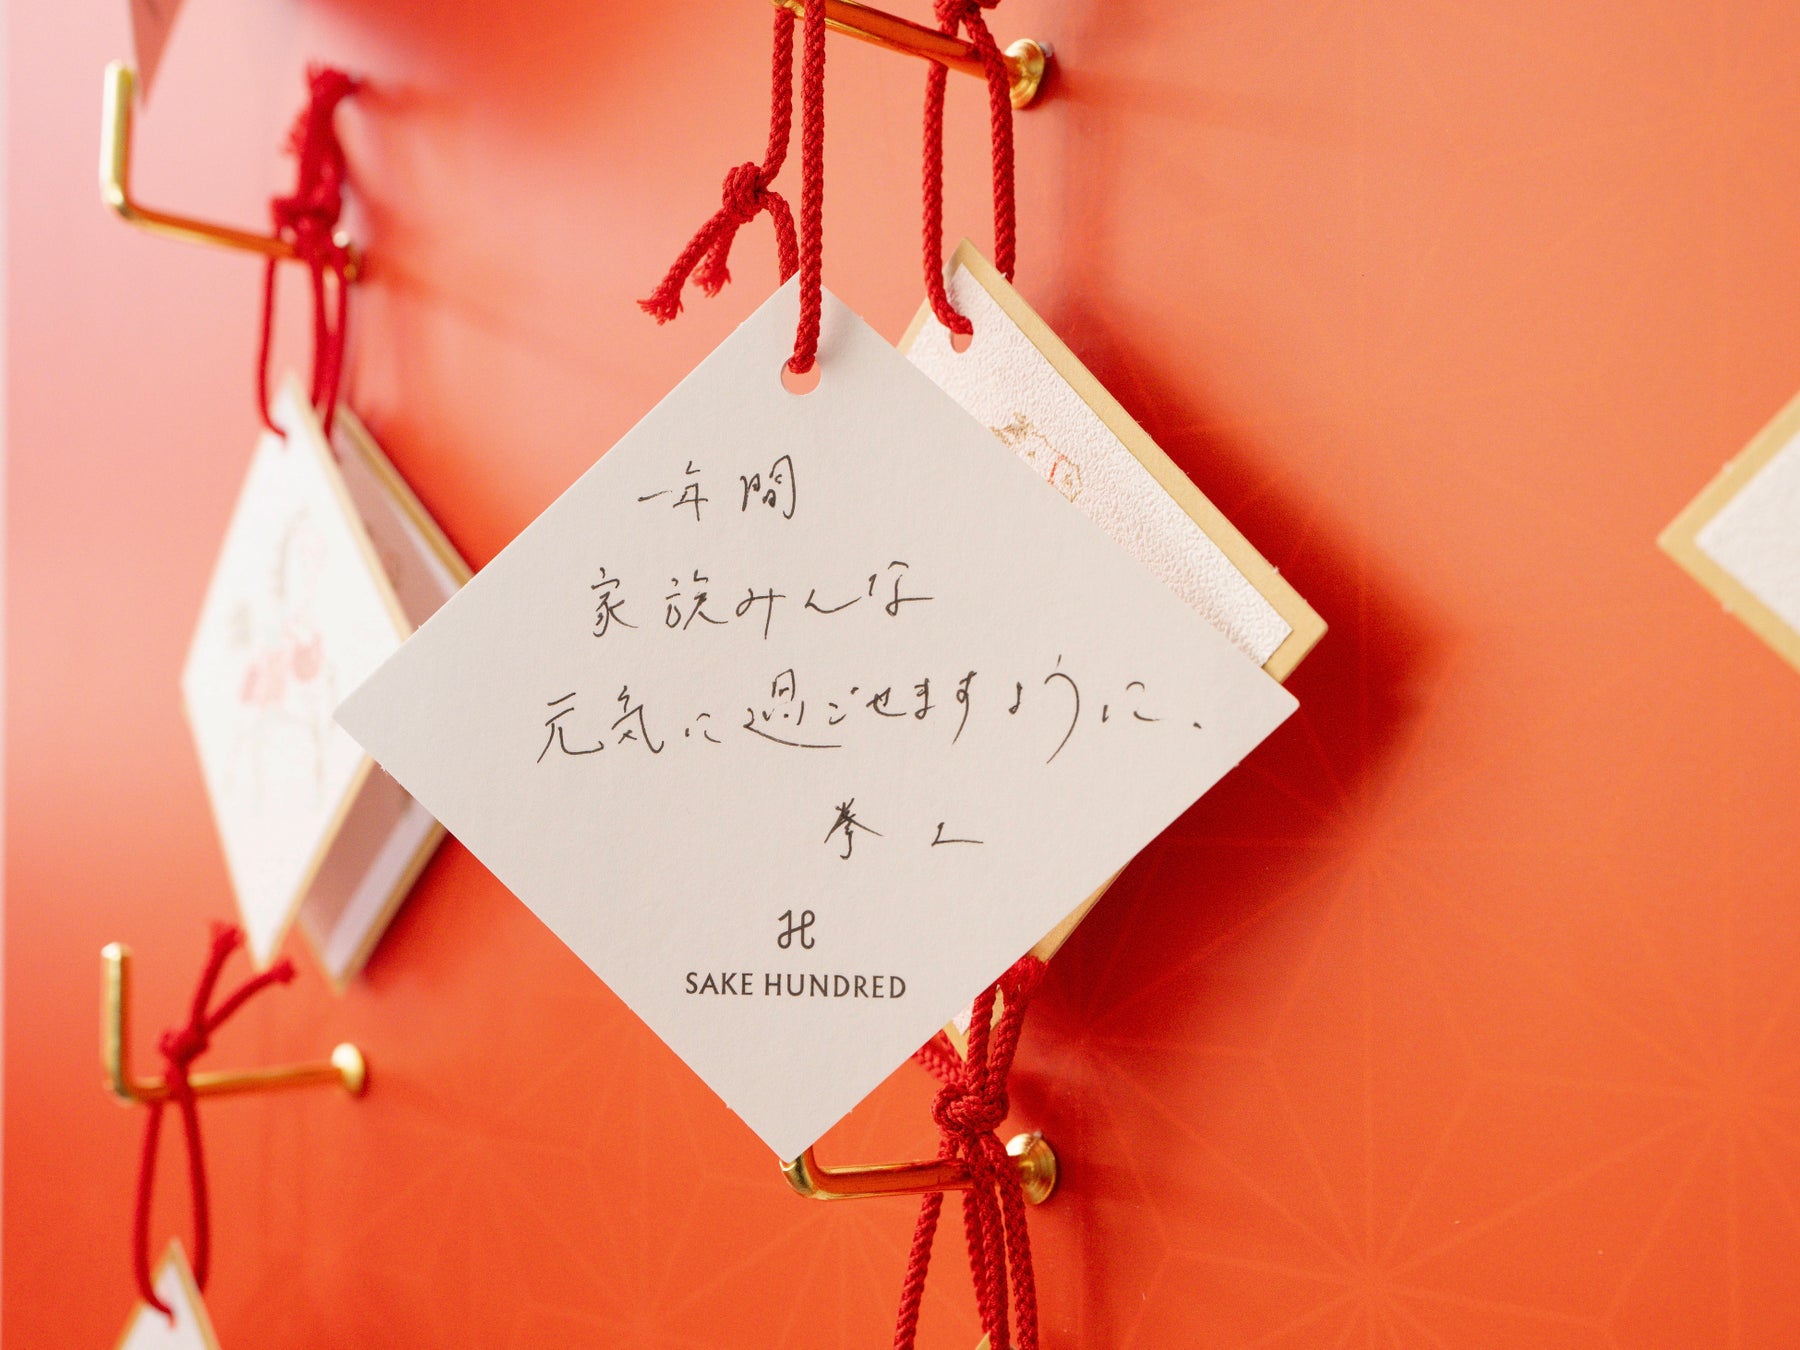 一年間
家族みんな
元気に過ごせますように.
SAKE HUNDRED